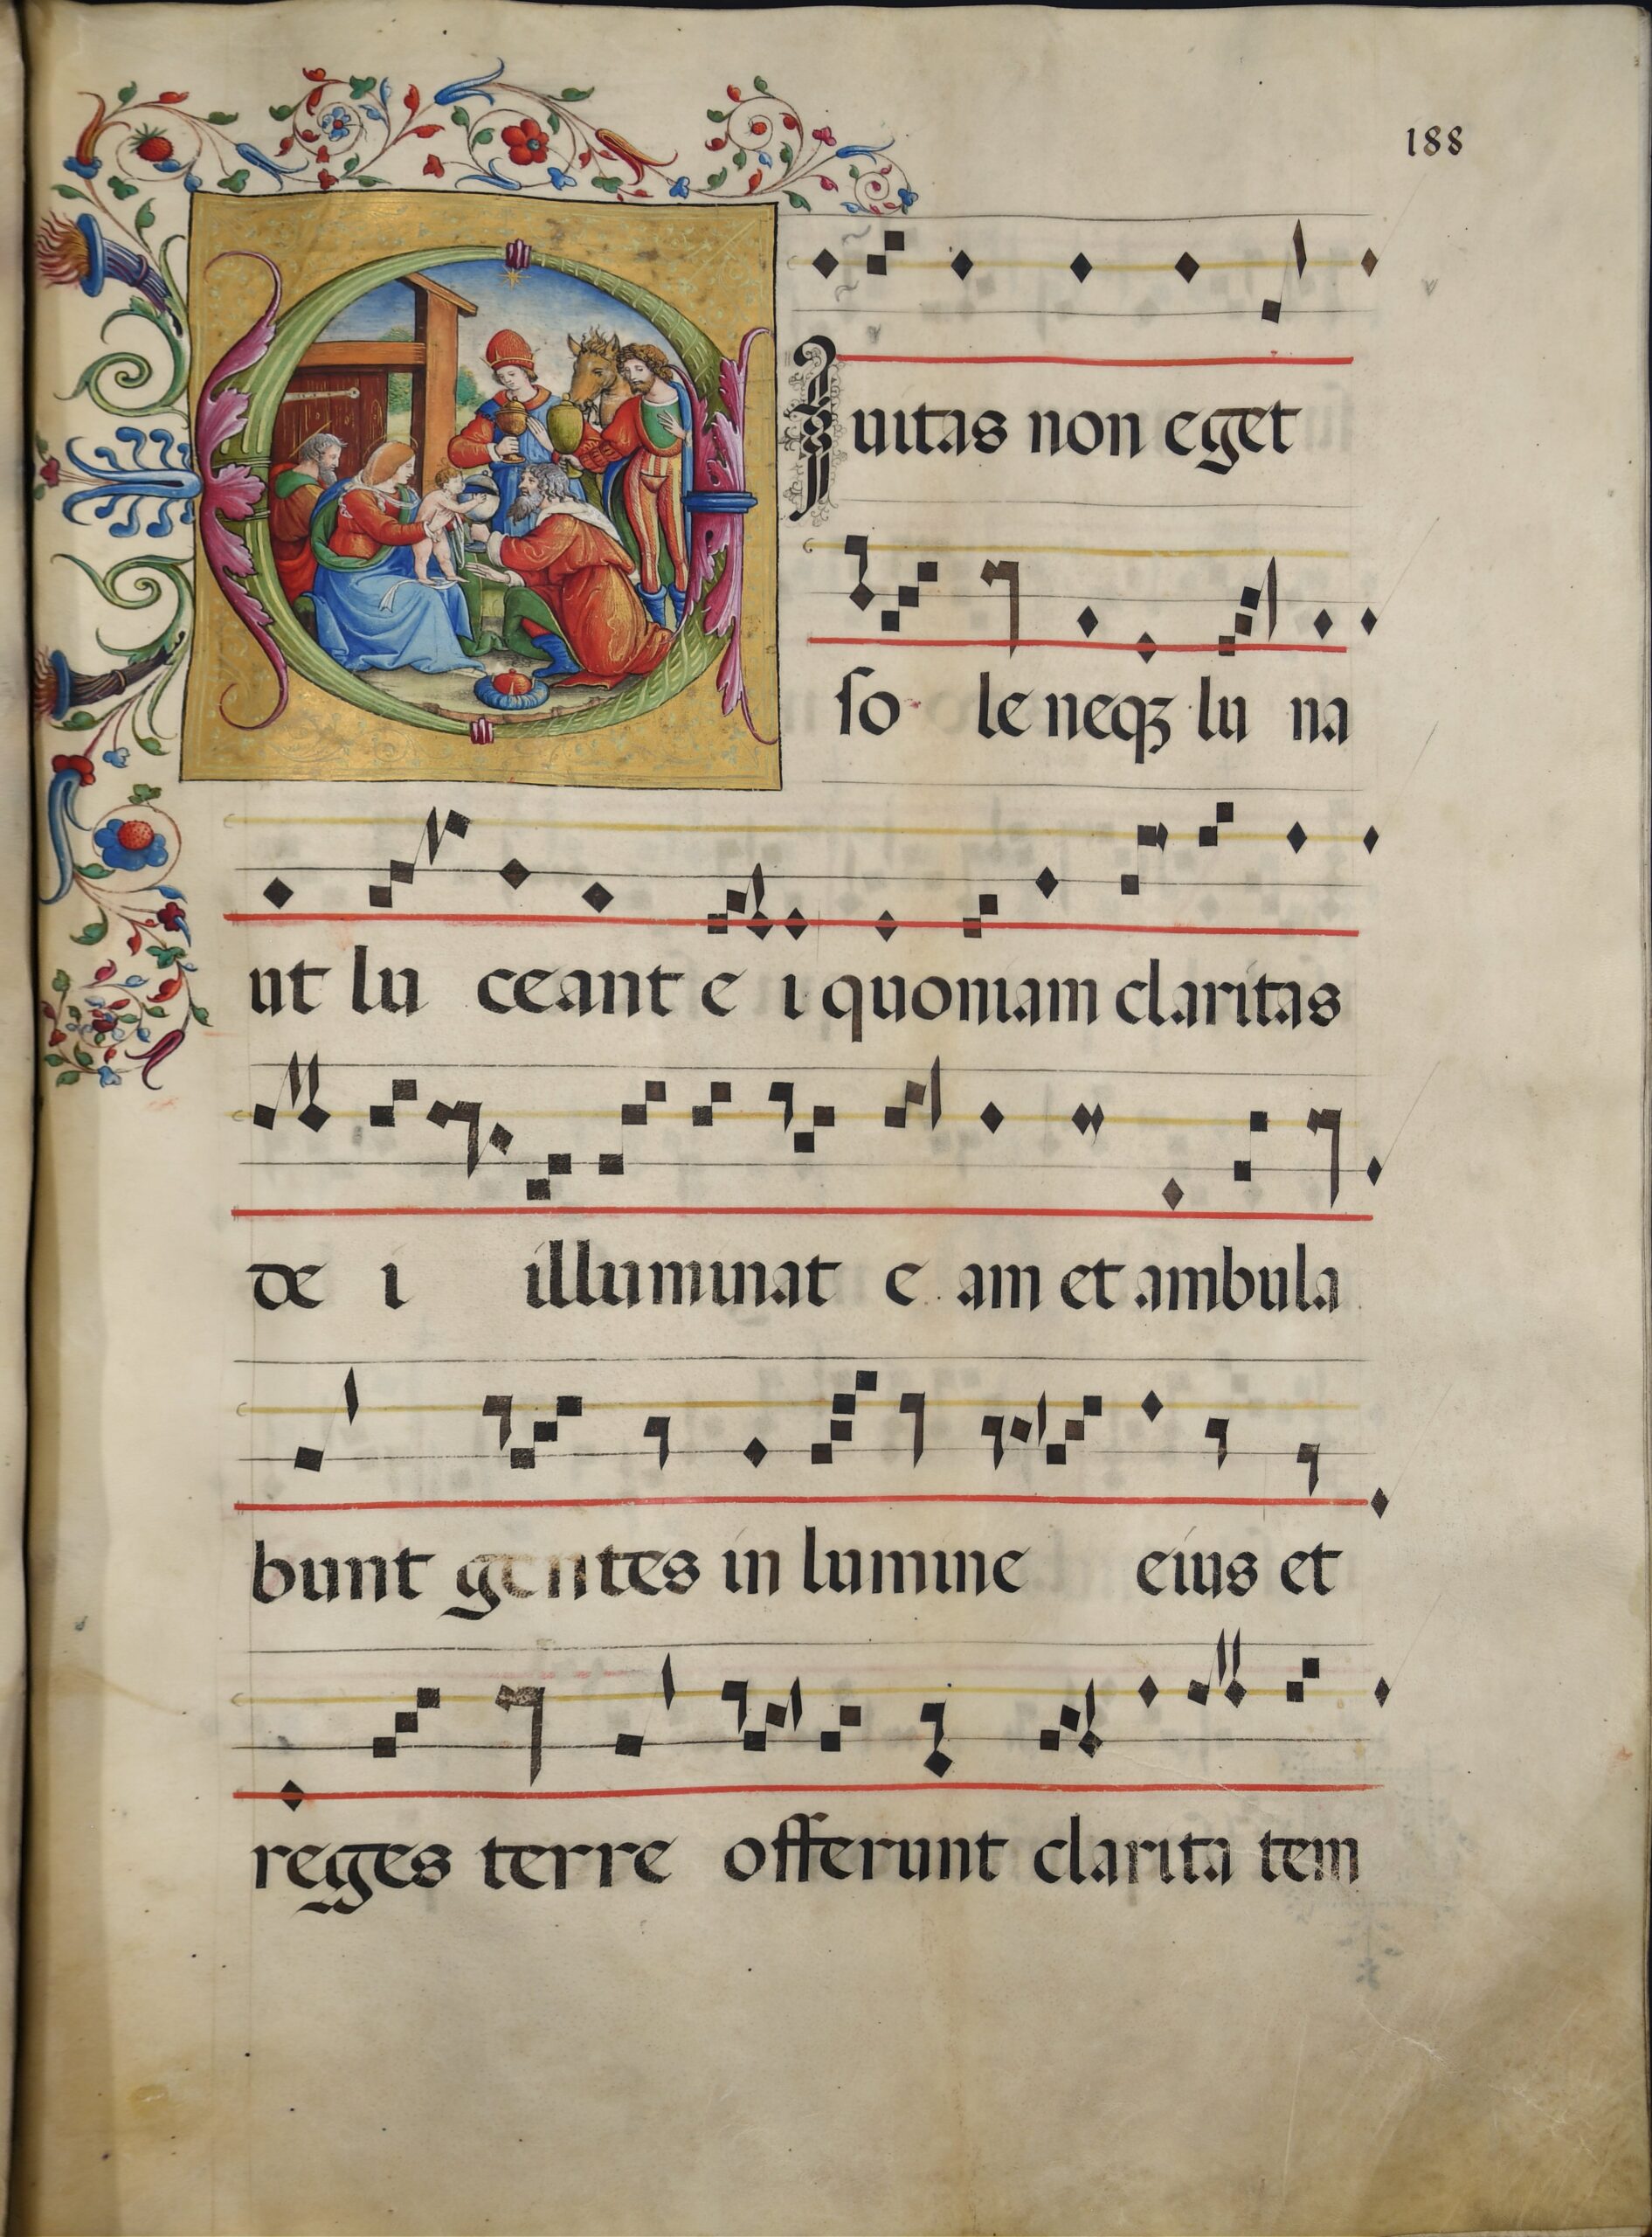 188
CIuitas non eget
so le neqꝫ lu na
ut lu ceant e i quoniam claritas
de i illuminat e am et ambula
bunt gentes in lumine eius et
reges terre offerunt clarita tem